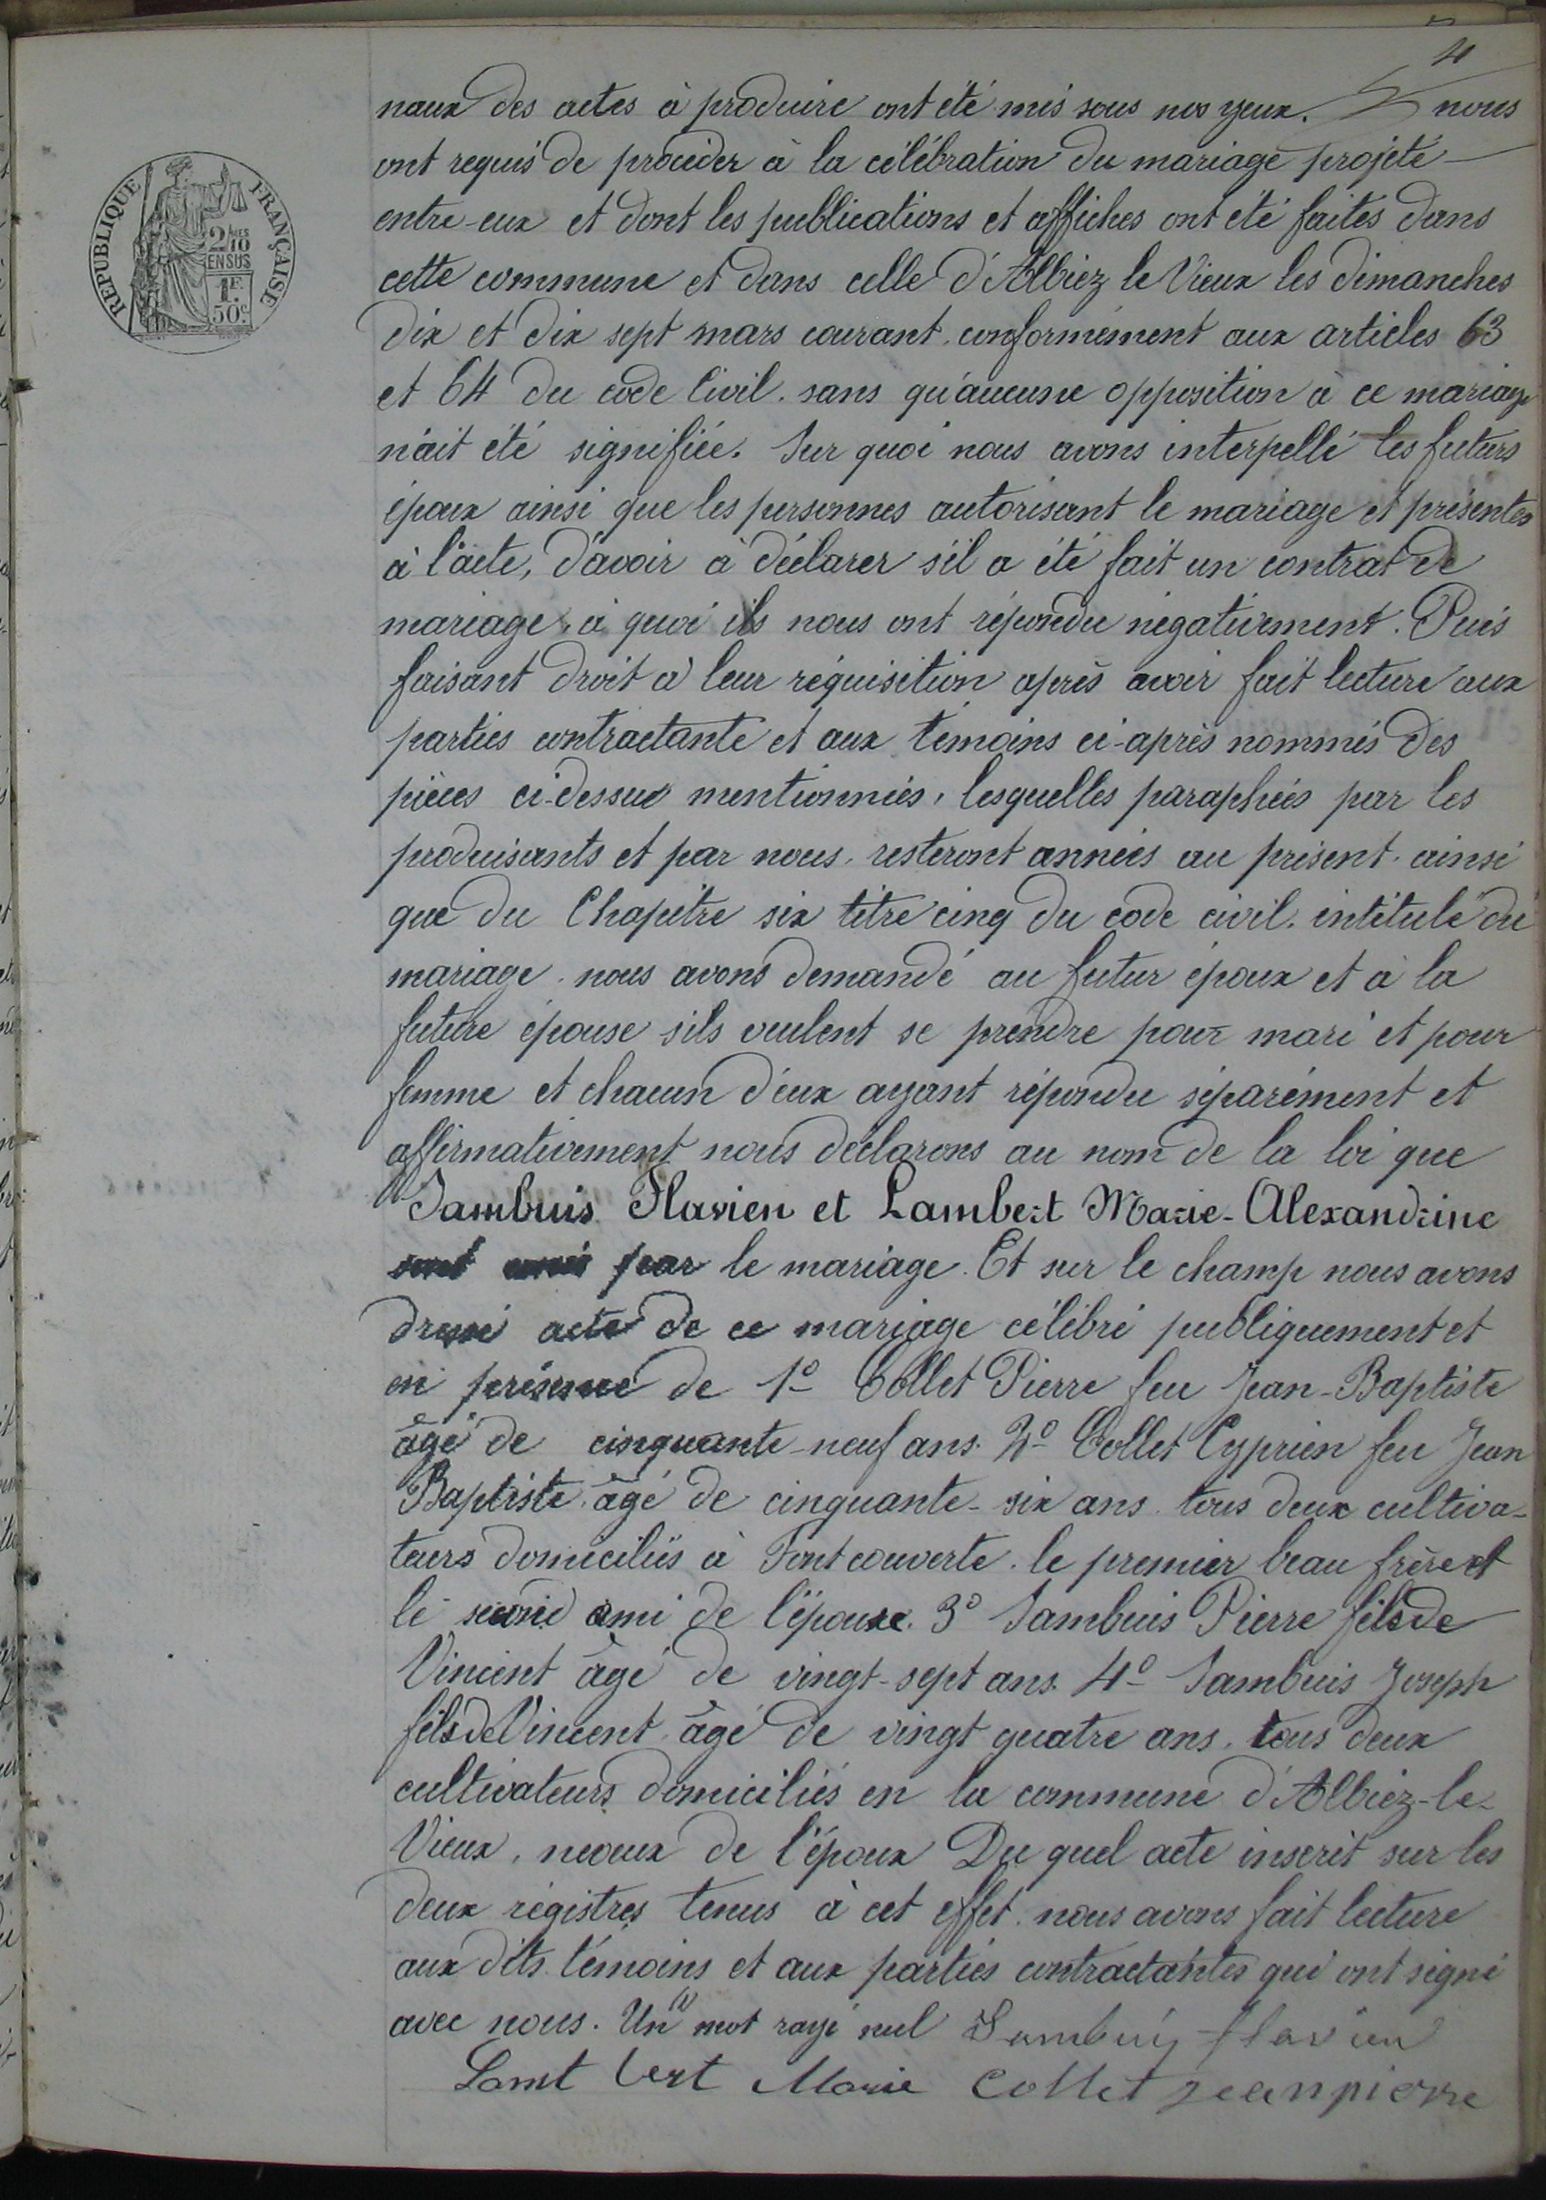 4
naux des actes à produire ont été mis sous nos yeux. nous
ont requis de procéder à la célébration du mariage projeté
entre eux et dont les publications et affiches ont été faites dans
cette commune et dans celle d'Albiez le Vieux les dimanches
dix et dix sept mars courant. conformément aux articles 63
et 64 du code Civil. sans qu'aucune opposition à ce mariage
n'ait été signifiée. Sur quoi nous avons interpellé les futurs
époux ainsi que les personnes autorisant le mariage et présentes
à l'acte, d'avoir à déclarer s'il a été fait un contrat de
mariage, à quoi ils nous ont répondu négativement. Puis
faisant droit à leur réquisition après avoir fait lecture aux
parties contractante et aux témoins ci-après nommés des
pièces ci-dessus mentionnées, lesquelles paraphées par les
produisants et par nous, resteront annéés au présent. ainsi
que du Chapitre six titre cinq du code civil. intitulé du
mariage. nous avons demandé au futur époux et à la
future épouse s'ils veulent se prendre pour mari et pour
femme et chacun d'eux ayant répondu séparément et
affirmativement nous déclarons au nom de la loi que
Sambuis Flavien et Lambert Marie-Alexandrine
sont unis par le mariage. Et sur le champ nous avons
dressé acte de ce mariage célébré publiquement et
en présence de 1º Collet Pierre feu Jean-Baptiste
âgé de cinquante-neuf ans. 2º Collet Cyprien feu Jean
Baptiste. âgé de cinquante-six ans. tous deux cultiva-
teurs domiciliés à Fontcouverte. le premier beau frère et
le second ami de l'épouse. 3º Sambuis Pierre fils de
Vincent âgé de vingt-sept ans. 4º Sambuis Joseph
fils de Vincent âgé de vingt quatre ans. tous deux
cultivateurs domiciliés en la commune d'Albiez-le-
Vieux, neveux de l'époux Du quel acte inscrit sur les
deux régistres tenus à cet effet. nous avons fait lecture
aux dits témoins et aux parties contractantes qui ont signé
avec nous. Un mot rayé nul Sambuis flavien
Lamt bert Marie Collet jeanpierre
RÉPUBLIQUE FRANÇAISE
2/10
EN SUS
1F
50c